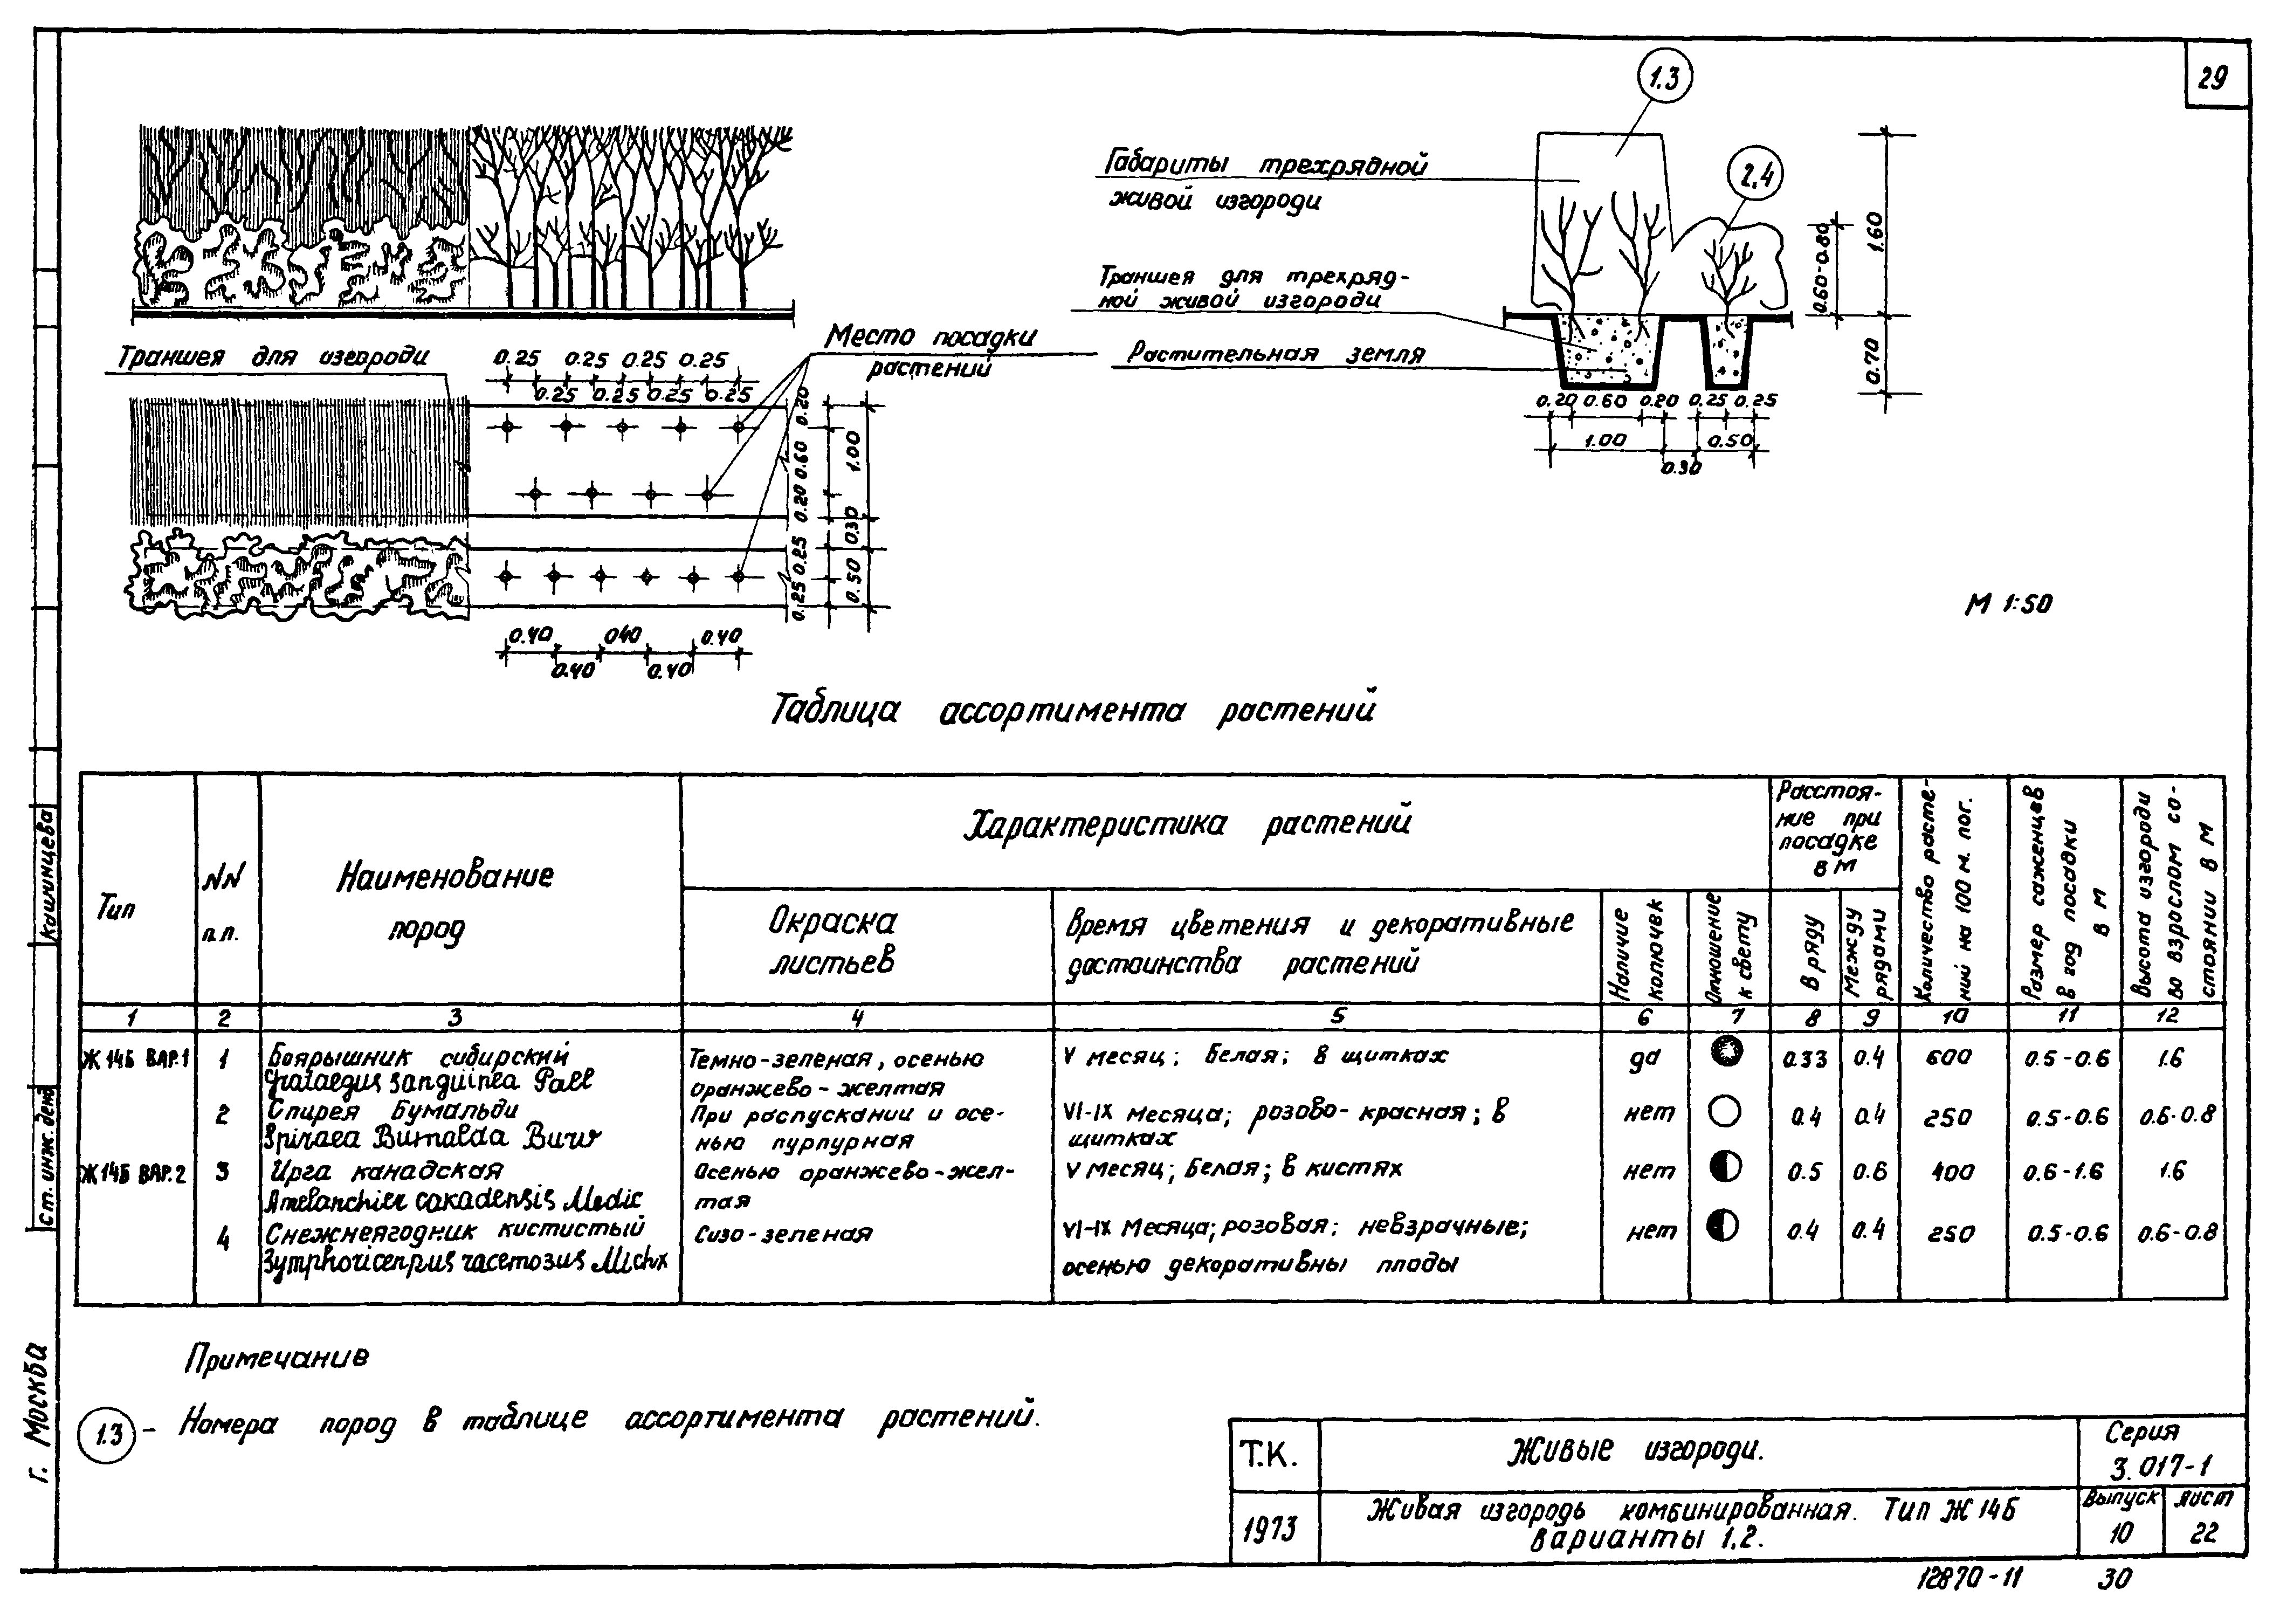 29
1.3
Габариты трехрядной
живой изгороди
2.4
1.60
0.60-0.80
Траншея для трехряд-
ной живой изгороди
Растительная земля
0.70
0.20 0.60 0.20 0.25 0.25
1.00 0.50
0.30
М 1:50
Траншея для изгороди
0.25 0.25 0.25 0.25
0.25 0.25 0.25 0.25
Место посадки
растений
0.20
0.60
0.20
1.00
0.30
0.25
0.25
0.50
0.40 040 0.40
0.40 0.40
Таблица ассортимента растений
Тип
NN
п.п.
Наименование
пород
Характеристика растений
Окраска
листьев
Время цветения и декоративные
достоинства растений
Наличие
колючек
Отношение
к свету
Расстоя-
ние при
посадке
в м
В ряду
Между
рядами
Количество расте-
ний на 100 м. пог.
Размер саженцев
в год посадки
в м
Высота изгороди
во взрослом со-
стоянии в м
1 2 3 4 5 6 7 8 9 10 11 12
Ж 14Б ВАР.1 1 Боярышник сибирский Темно-зеленая, осенью V месяц; белая; в щитках да 0.33 0.4 600 0.5-0.6 1.6
Crataegus sanguinea Pall оранжево-желтая
2 Спирея Бумальди При распускании и осе- VI-IX месяца; розово-красная; в нет 0.4 0.4 250 0.5-0.6 0.6-0.8
Spiraea Bumalda Burv нью пурпурная щитках
Ж 14Б ВАР.2 3 Ирга канадская Осенью оранжево-жел- V месяц; белая; в кистях нет 0.5 0.6 400 0.6-1.6 1.6
Amelanchier canadensis Medic тая
4 Снежнеягодник кистистый Сизо-зеленая VI-IX месяца; розовая; невзрачные; нет 0.4 0.4 250 0.5-0.6 0.6-0.8
Symphoricerpus racemosus Michx осенью декоративны плоды
Примечание
1.3 - Номера пород в таблице ассортимента растений.
Т.К.
Живые изгороди.
Серия
3.017-1
1973
Живая изгородь комбинированная. Тип Ж 14Б
варианты 1,2.
Выпуск
10
лист
22
12870-11 30
Кашинцева
Ст. инж. денд
г. Москва